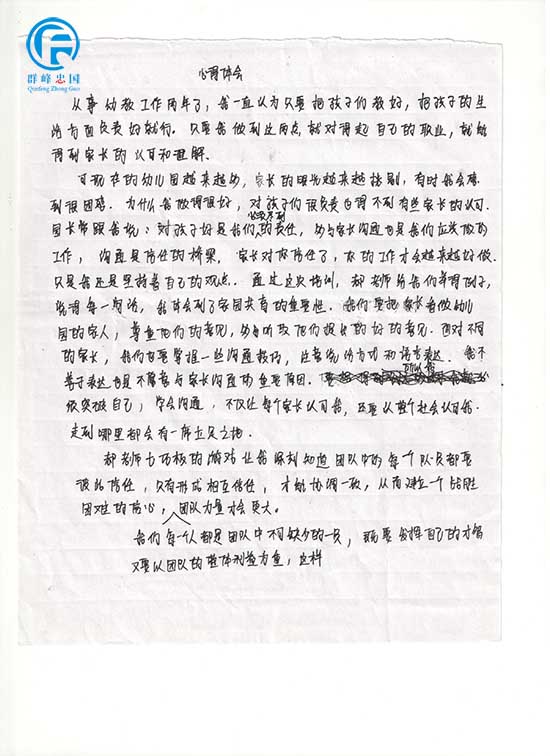 群峰忠国
Qunfeng Zhong Guo
心得体会
从事幼教工作两年了，我一直认为只要把孩子们教好，把孩子的生
活方面负责好就行。只要我做到这两点就对得起自己的职业，就能
得到家长的认可和理解。
可现在的幼儿园越来越多，家长的眼光越来越挑剔，有时我会感
到很困惑。为什么我做得很好，对孩子们很负责也得不到有些家长的认可。
园长常跟我说：对孩子好是我们必不可少的责任，多与家长沟通也是我们应该做的
工作，沟通是信任的桥梁，家长对你信任了，你的工作才会越来越好做。
只是我还是坚持着自己的观点。通过这次培训，郝老师给我们举得例子，
说得每一句话，我体会到了家园共育的重要性。我们要把家长看做幼儿
园的家人，尊重他们的意见，多多听取他们提出的好的意见。面对不同
的家长，我们也要掌握一些沟通技巧，注意说话方式和语言表达。我不
善于表达也是不愿意与家长沟通的重要原因。所以我
很突破自己，学会沟通，不仅让每个家长认可我，还要让整个社会认可我。
走到哪里都会有一席立足之地。
郝老师七巧板的游戏让我深刻知道团队中的每个队员都要
彼此信任，只有形成相互信任，才能协调一致，从而建立一个战胜
困难的信心，团队力量才会更大。
我们每个人都是团队中不可缺少的一员，既要发挥自己的才智
又要以团队的整体利益为重，这样